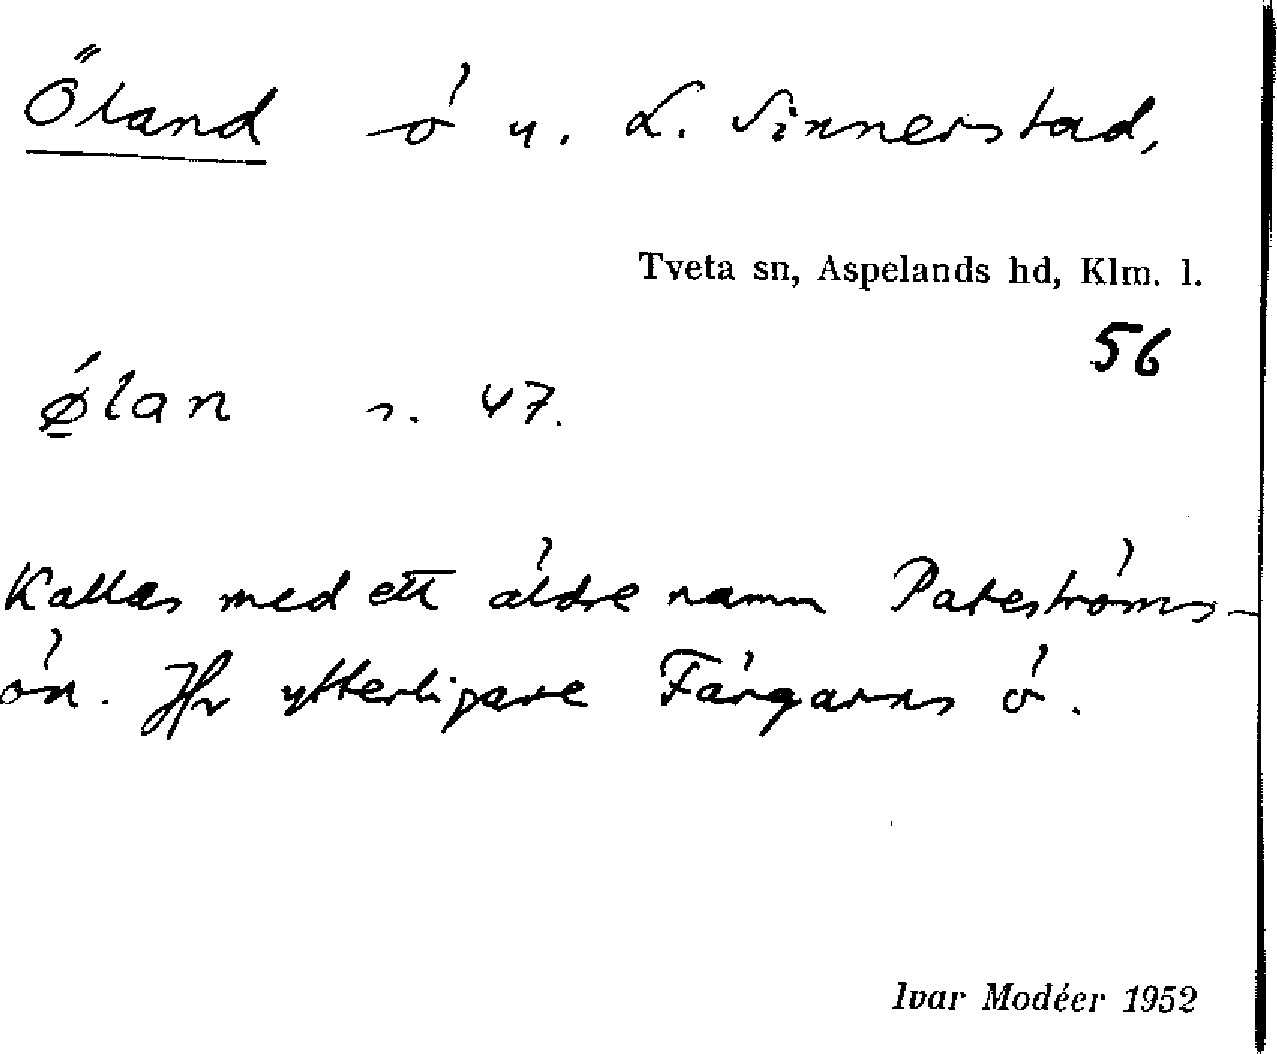 Öland ö u. L. Sinnerstad,
Tveta sn, Aspelands hd, Klm. l.
56
ǿlan s. 47.
Kallas med ett äldre namn Pateströms-
ön. Jfr ytterligare Färgarns ö.
Ivar Modéer 1952